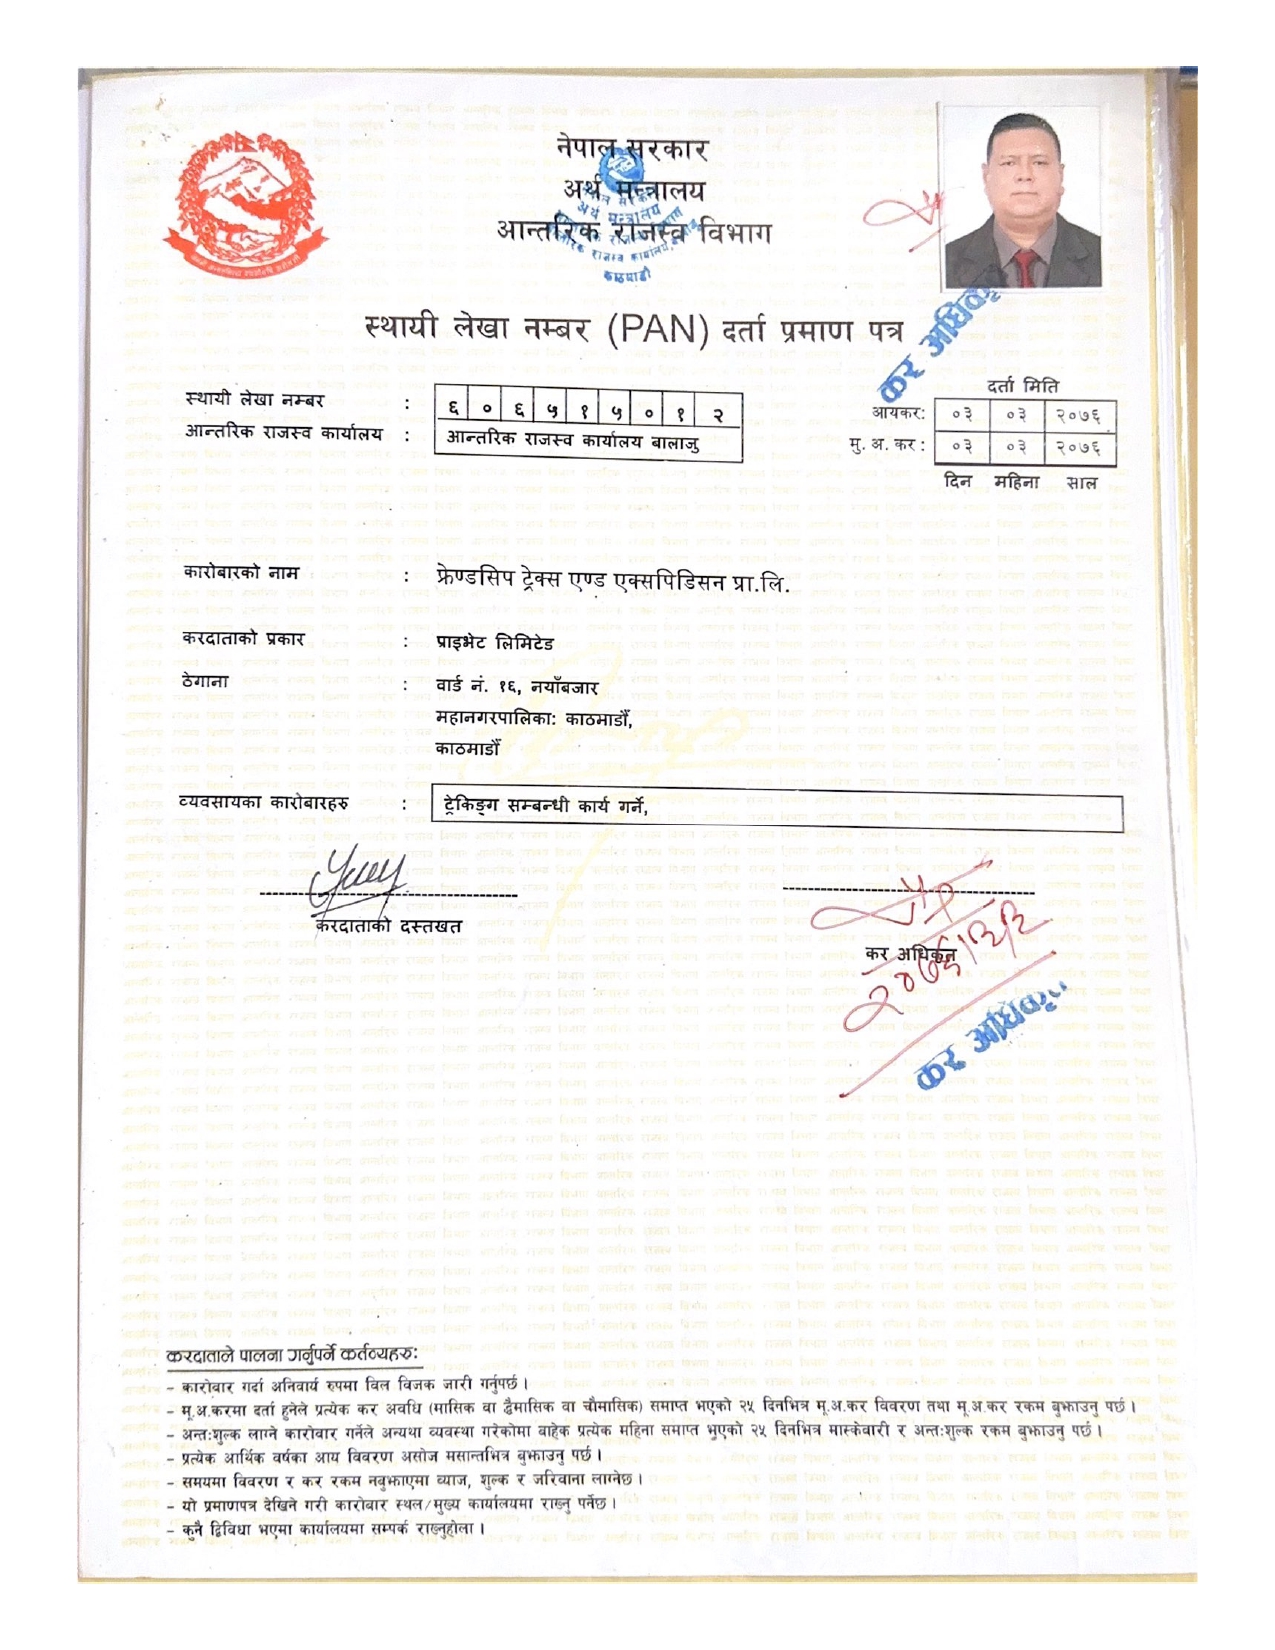 नेपाल सरकार
अर्थ मन्त्रालय
आन्तरिक राजस्व विभाग
स्थायी लेखा नम्बर (PAN) दर्ता प्रमाण पत्र
कर अधिकृ
स्थायी लेखा नम्बर : ६ ० ६ ५ १ ५ ० १ २
आन्तरिक राजस्व कार्यालय : आन्तरिक राजस्व कार्यालय बालाजु
दर्ता मिति
आयकर: ०३ ०३ २०७६
मु. अ. कर : ०३ ०३ २०७६
दिन महिना साल
कारोबारको नाम : फ्रेण्डसिप ट्रेक्स एण्ड एक्सपिडिसन प्रा.लि.
करदाताको प्रकार : प्राइभेट लिमिटेड
ठेगाना : वार्ड नं. १६, नयाँबजार
महानगरपालिका: काठमाडौँ,
काठमाडौँ
व्यवसायका कारोबारहरु : ट्रेकिङ्ग सम्बन्धी कार्य गर्ने,
करदाताको दस्तखत
कर अधिकृत
कर अधिकृ
करदाताले पालना गर्नुपर्ने कर्तव्यहरु:
- कारोबार गर्दा अनिवार्य रुपमा विल विजक जारी गर्नुपर्छ ।
- मू.अ.करमा दर्ता हुनेले प्रत्येक कर अवधि (मासिक वा द्वैमासिक वा चौमासिक) समाप्त भएको २५ दिनभित्र मू.अ.कर विवरण तथा मू.अ.कर रकम बुझाउनु पर्छ ।
- अन्त:शुल्क लाग्ने कारोबार गर्नेले अन्यथा व्यवस्था गरेकोमा बाहेक प्रत्येक महिना समाप्त भएको २५ दिनभित्र मास्केवारी र अन्त:शुल्क रकम बुझाउनु पर्छ ।
- प्रत्येक आर्थिक वर्षका आय विवरण असोज मसान्तभित्र बुझाउनु पर्छ ।
- समयमा विवरण र कर रकम नबुझाएमा व्याज, शुल्क र जरिवाना लाग्नेछ ।
- यो प्रमाणपत्र देखिने गरी कारोबार स्थल/मुख्य कार्यालयमा राख्नु पर्नेछ ।
- कुनै द्विविधा भएमा कार्यालयमा सम्पर्क राख्नुहोला ।